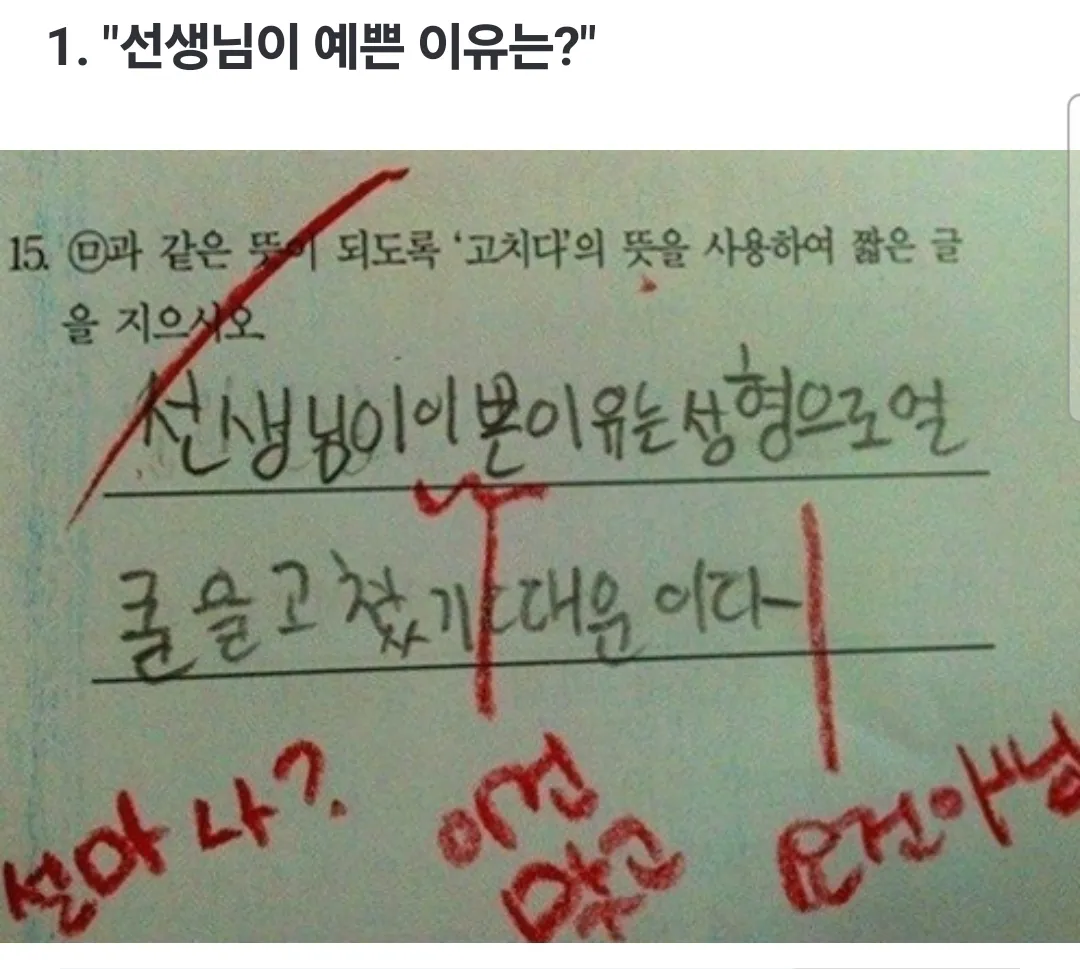 1. "선생님이 예쁜 이유는?"
15. ㉤과 같은 뜻이 되도록 '고치다'의 뜻을 사용하여 짧은 글
을 지으시오
선생님이 이쁜 이유는 성형으로 얼
굴을 고쳤기 때문이다
설마 나?
이건
맞고
요건 아님